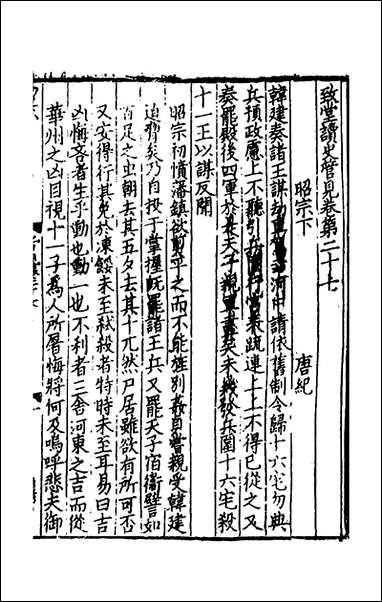 致堂讀史管見卷第二十七
昭宗下　唐紀
韓建奏諸王謀劫車駕幸河中請依舊制令歸十六宅勿典
兵預政慮上不聽引兵圍行宮表疏連上上不得已從之又
奏罷殿後四軍於是天子親軍盡矣未幾發兵圍十六宅殺
十一王以謀反聞
昭宗初憤藩鎮欲剪平之而不能旌別姦自嘗親受韓建
迫脅矣乃自投于掌握既罷諸王兵又罷天子宿衛譬如
百足之虫朝去其五夕去其十兀然尸居雖欲有所可否
又安得行其免於凍餒未至弒殺者特時未至耳易曰吉
凶悔吝者生乎動也動一也不利者三舍河東之吉而從
華州之凶目視十一子為人所屠悔將何及嗚呼悲夫御